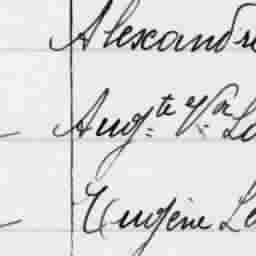 Alexandre
Aug.te V.or Le
Eugène Le